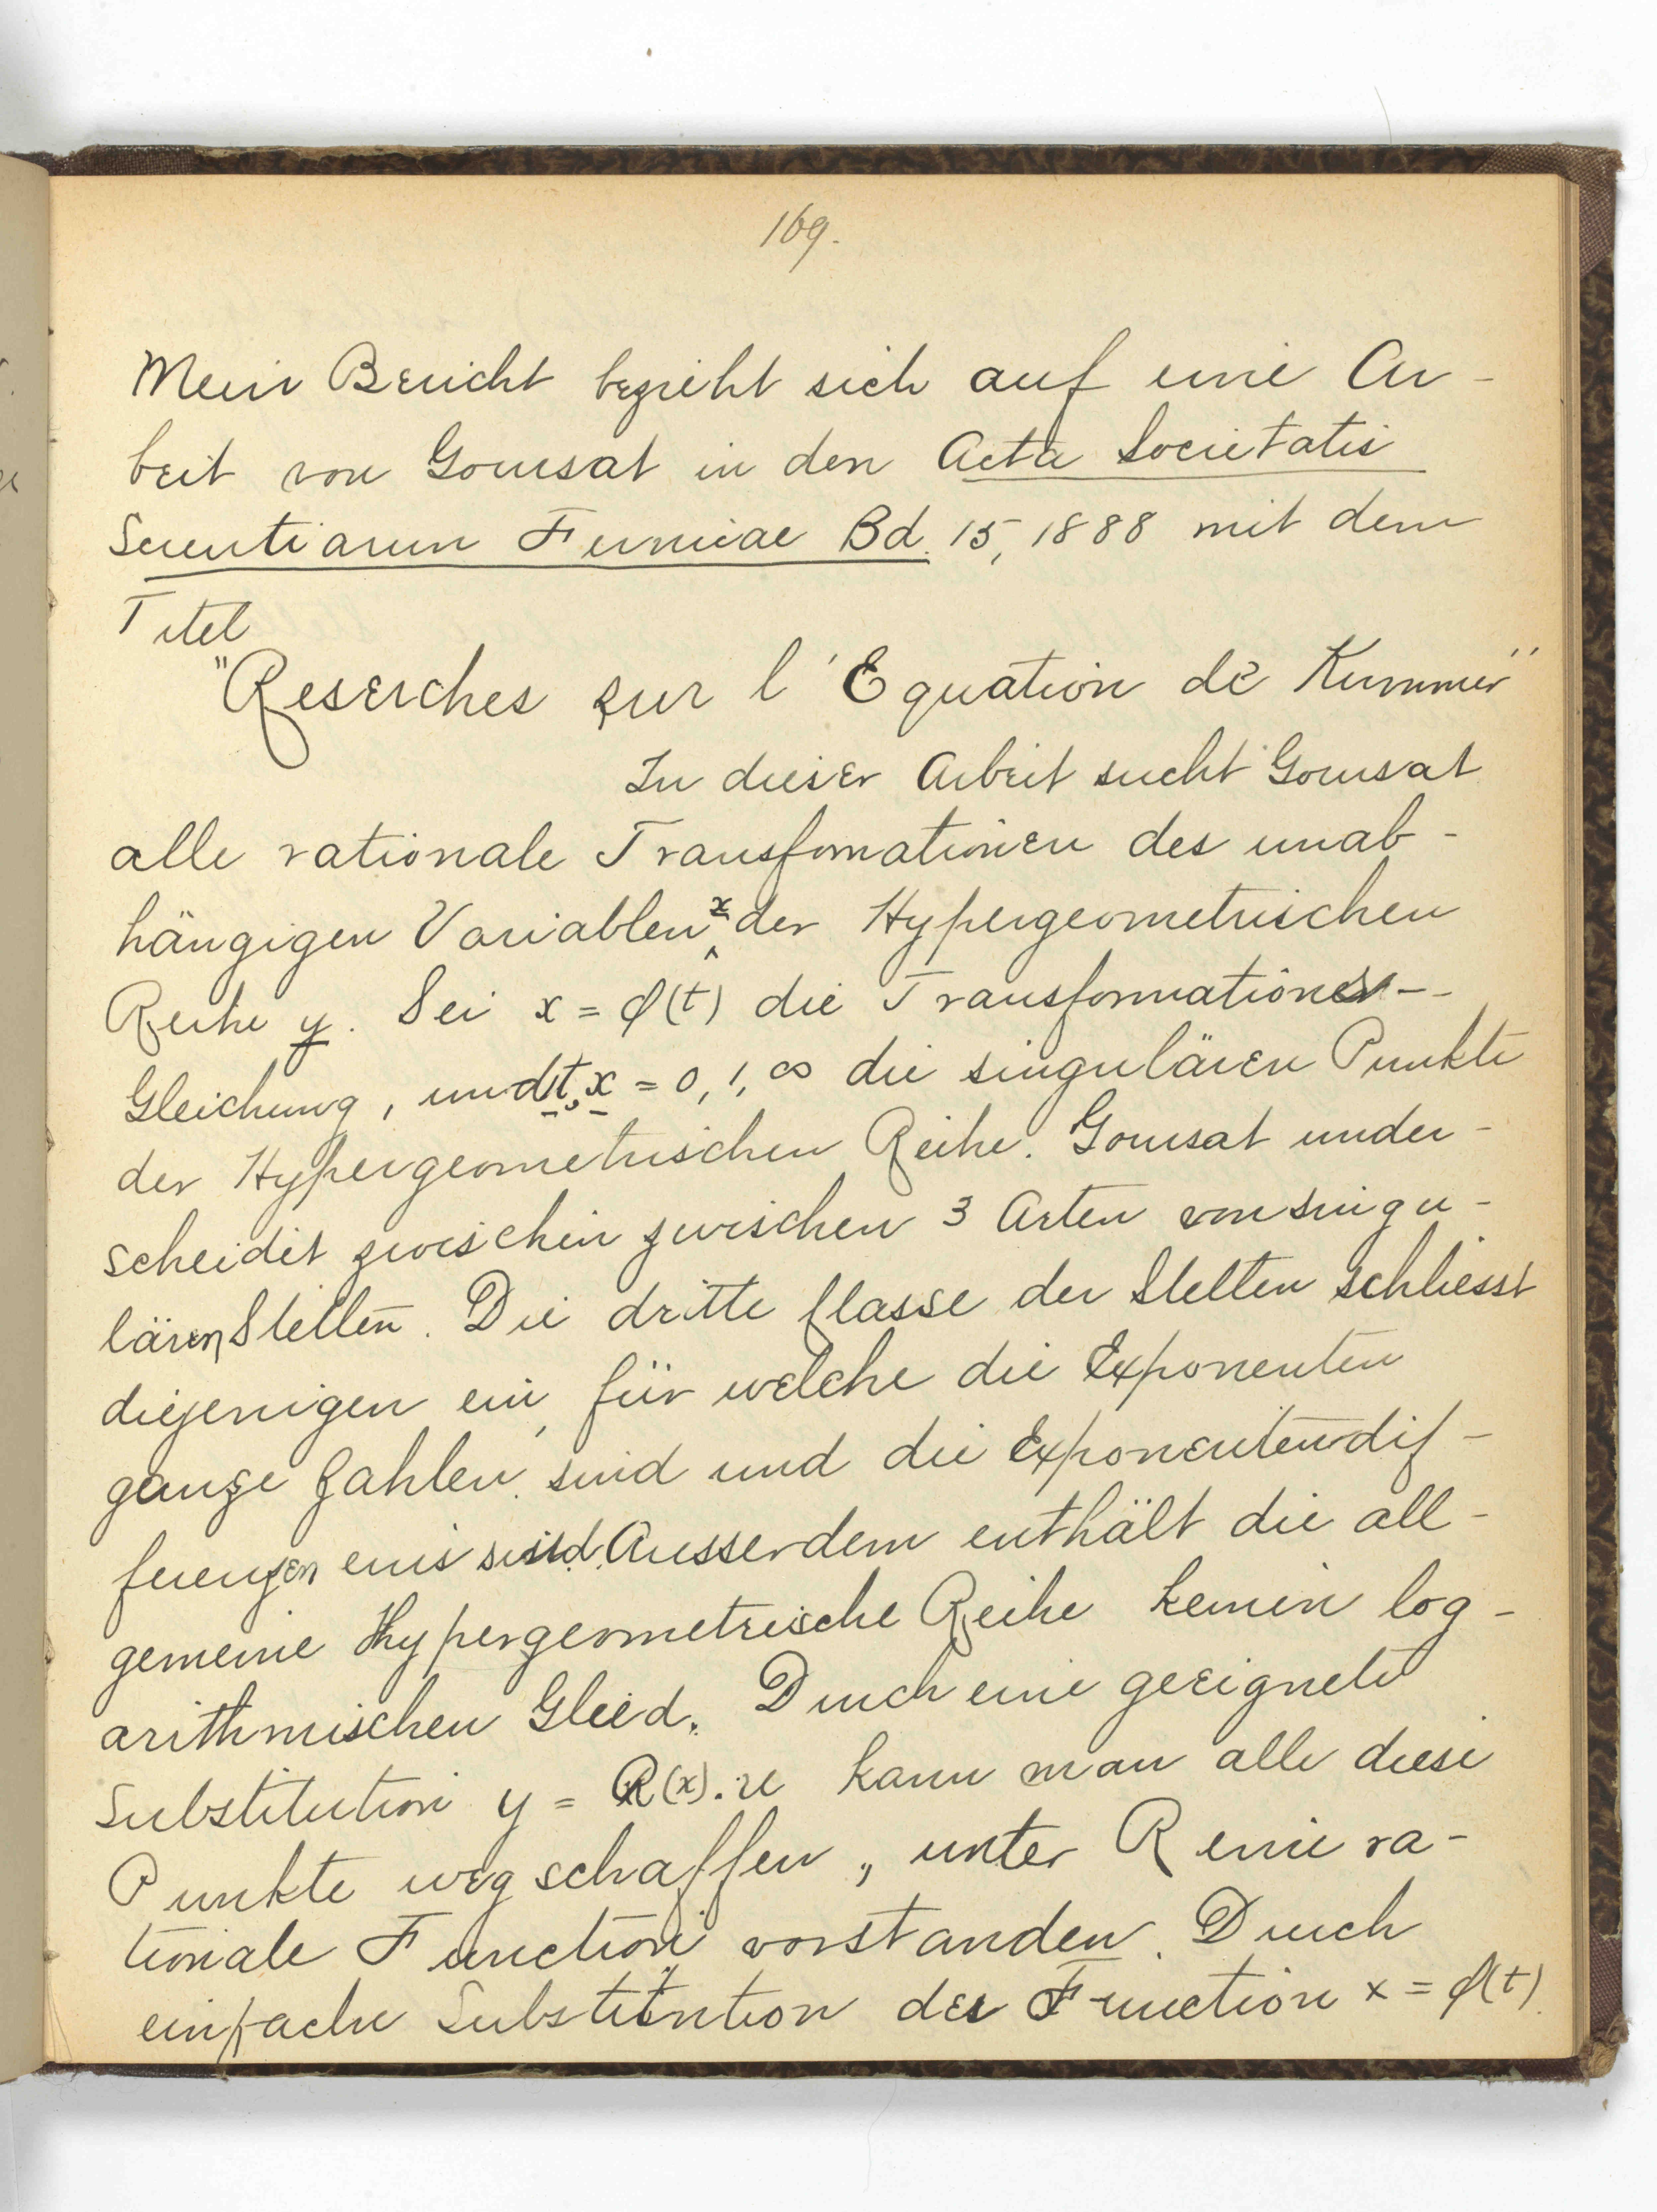 169.
Mein Bericht bezieht sich auf eine Ar-
beit von Goursat in den Acta Societatis
Scientiarum Fennicae Bd. 15, 1888 mit dem
Titel
"Reserches sur l'Equation de Kummer"
In dieser Arbeit sucht Goursat
alle rationale Transfomationen des unab-
hängigen Variablen x der Hypergeometrischen
Reihe y. Sei x = φ(t) die Transformations-
Gleichung, und t, x = 0, 1, ∞ die singulären Punkte
der Hypergeometrischen Reihe. Goursat under-
scheidet zwischen zwischen 3 Arten von singu-
lären Stellen. Die dritte Classe der Stellen schliesst
diejenigen ein, für welche die Exponenten
ganze Zahlen sind und die Exponentendif-
ferenzen eins sind. Ausserdem enthält die all-
gemeine Hypergeometrische Reihe keinen log-
arithmischen Glied. Durch eine geeignete
Substitution y = R(x).u kann man alle diese
Punkte wegschaffen, unter R eine ra-
tionale Function vorstanden. Durch
einfache Substitution der Function x = φ(t).